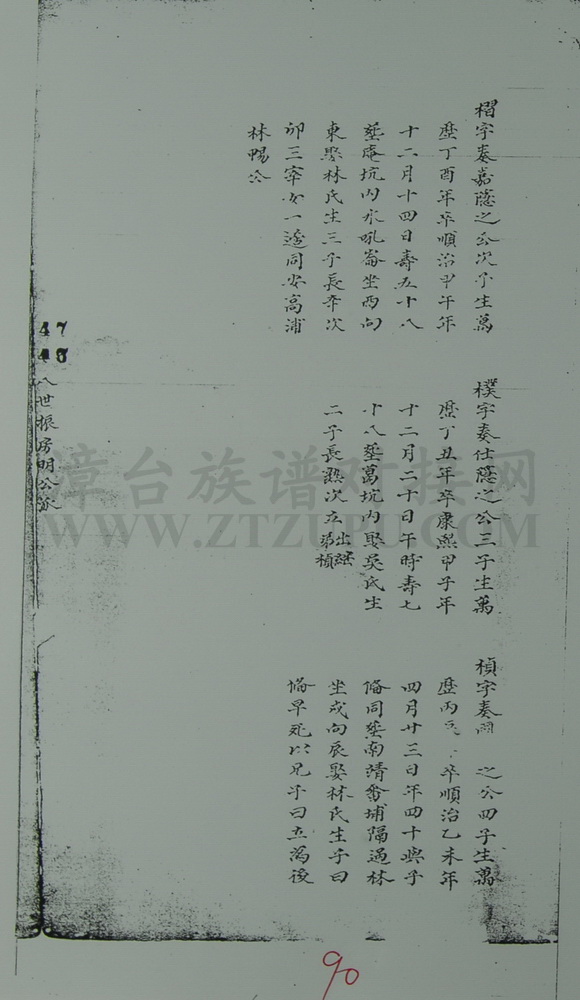 榴字奏嘉蔭之公次子生萬
歷丁酉年卒順治甲午年
十二月十四日壽五十八
葬庵坑內水吼崙坐西向
東娶林氏生三子長奔次
卯三宰女一適同安高浦
林暢公
樸字奏仕蔭之公三子生萬
歷丁丑年卒康熙甲子年
十二月二十日午時壽七
十八葬葛坑內娶吳氏生
二子長熱次立出繼弟楨
楨字奏 之公四子生萬
歷丙 卒順治乙未年
四月廿三日年四十與子
偹同葬南靖畨埔隔過林
坐戌向辰娶林氏生子曰
偹早死以兄子曰立為後
47
48
八世振房明公派
漳台族谱对接网
WWW.ZTZUPU.COM
90